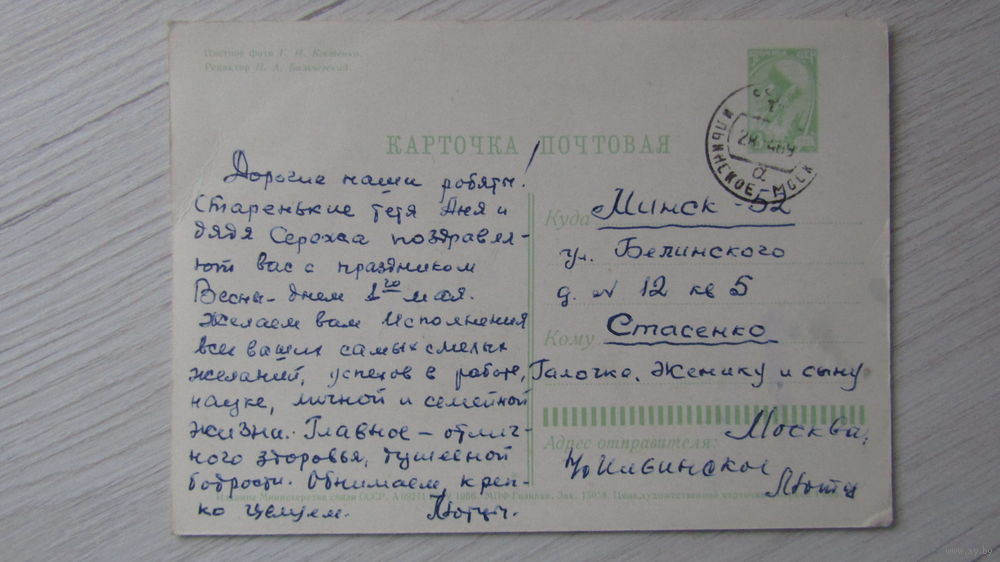 Цветное фото Г. И. Костенко.
Редактор П. А.
КАРТОЧКА ПОЧТОВАЯ
ИЛЬИНСКОЕ МОСК
Дорогие наши робяты!
Старенькие тетя Аня и
дядя Сережа поздравля-
ют вас с праздником
Весны – днем 1го мая.
Желаем вам исполнения
всех ваших самых смелых
желаний, успехов в работе,
науке, личной и семейной
жизни. Главное – отлич-
ного здоровья, душевной
бодрости. Обнимаем, креп-
ко целуем.
Куда Минск - 52
ул. Белинского
д. № 12 кв 5
Кому Стасенко
Галочке, Женику и сыну
Адрес отправителя: Москва,
п/о Ильинское
Издание Министерства связи СССР.
www.ay.by